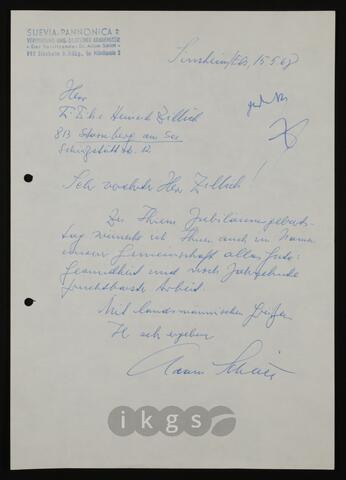 SUEVIA PANNONICA
VEREINIGUNG UNG.-DEUTSCHER AKADEMIKER
Der Vorsitzende: Dr. Adam Schlitt
Sinsheim/Els, 15.5.68
Herr
Heinrich Zillich
813 Starnberg am See
12
Sehr verehrter Herr Zillich!
Zu Ihrem Jubiläumsgeburts-
tag wünsche ich Ihnen auch im Namen
unserer Gemeinschaft alles Gute:
Gesundheit und noch Jahrzehnte
fruchtbarste Arbeit.
Mit landsmannischen Grüßen
Ihr sehr ergebener
Adam
ikgs